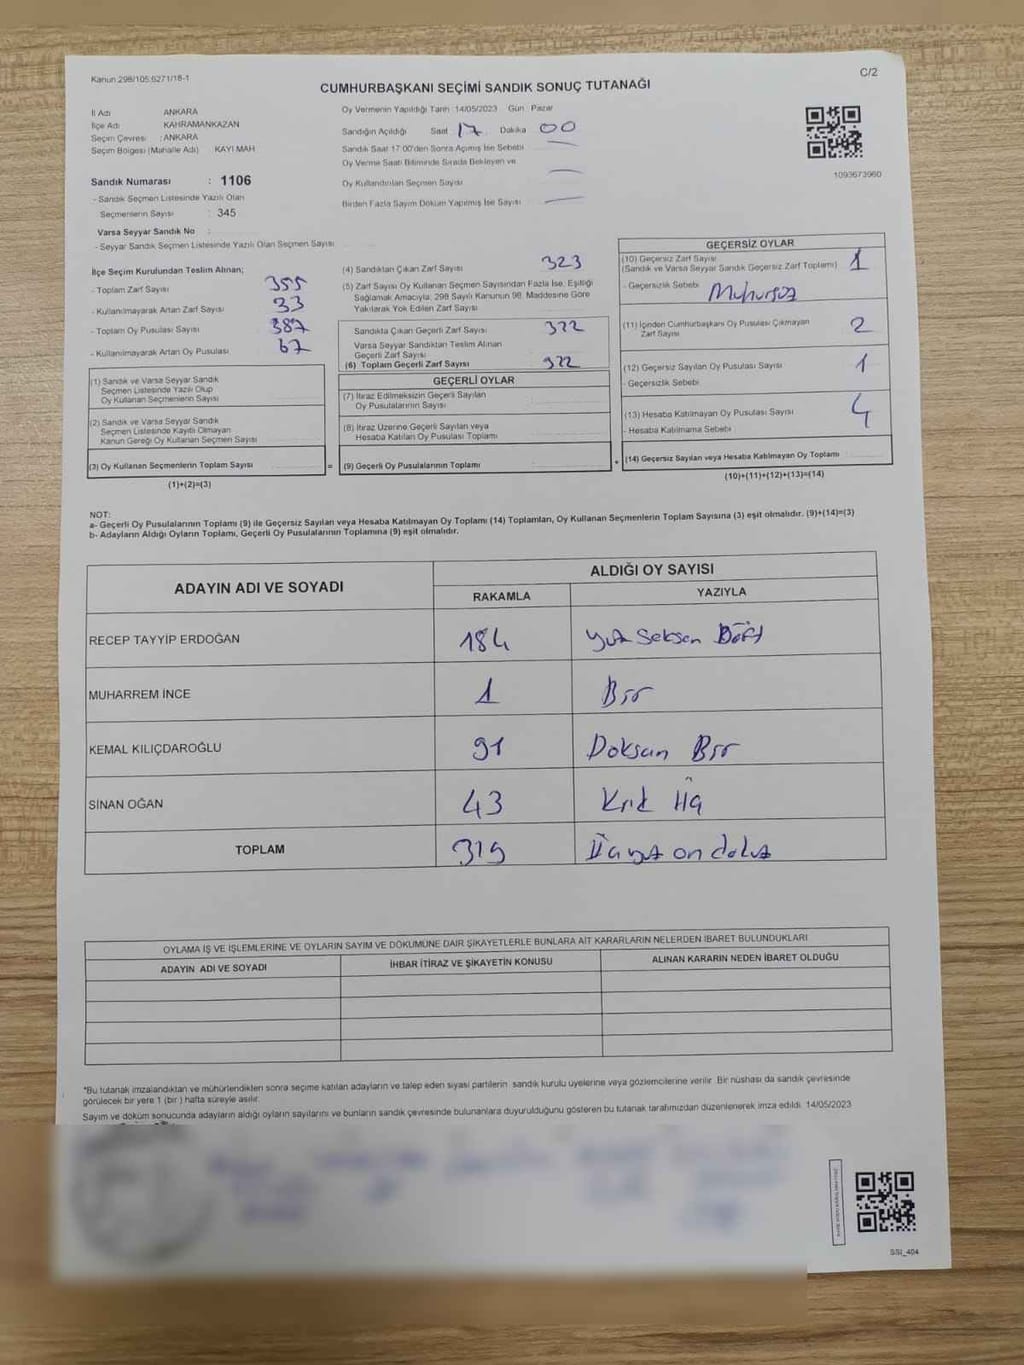 Kanun 298/105:6271/18-1
C/2
CUMHURBAŞKANI SEÇİMİ SANDIK SONUÇ TUTANAĞI
İl Adı ANKARA
İlçe Adı KAHRAMANKAZAN
Seçim Çevresi : ANKARA
Seçim Bölgesi (Mahalle Adı) KAYI MAH
Sandık Numarası : 1106
- Sandık Seçmen Listesinde Yazılı Olan
Seçmenlerin Sayısı : 345
Varsa Seyyar Sandık No
- Seyyar Sandık Seçmen Listesinde Yazılı Olan Seçmen Sayısı
Oy Vermenin Yapıldığı Tarih : 14/05/2023 Gün : Pazar
Sandığın Açıldığı Saat 17 Dakika 00
Sandık Saat 17:00'den Sonra Açımış İse Sebebi
Oy Verme Saati Bitiminde Sırada Bekleyen ve
Oy Kullandırılan Seçmen Sayısı
Birden Fazla Sayım Döküm Yapılmış İse Sayısı
1093673960
İlçe Seçim Kurulundan Teslim Alınan;
- Toplam Zarf Sayısı 355
- Kullanılmayarak Artan Zarf Sayısı 33
- Toplam Oy Pusulası Sayısı 387
- Kullanılmayarak Artan Oy Pusulası 67
(1) Sandık ve Varsa Seyyar Sandık
Seçmen Listesinde Yazılı Olup
Oy Kullanan Seçmenlerin Sayısı
(2) Sandık ve Varsa Seyyar Sandık
Seçmen Listesinde Kayıtlı Olmayan
Kanun Gereği Oy Kullanan Seçmen Sayısı
(3) Oy Kullanan Seçmenlerin Toplam Sayısı =
(1)+(2)=(3)
(4) Sandıktan Çıkan Zarf Sayısı 323
(5) Zarf Sayısı Oy Kullanan Seçmen Sayısından Fazla İse, Eşitliği
Sağlamak Amacıyla; 298 Sayılı Kanunun 98. Maddesine Göre
Yakılarak Yok Edilen Zarf Sayısı
Sandıkta Çıkan Geçerli Zarf Sayısı 322
Varsa Seyyar Sandıktan Teslim Alınan
Geçerli Zarf Sayısı
(6) Toplam Geçerli Zarf Sayısı 322
GEÇERLİ OYLAR
(7) İtiraz Edilmeksizin Geçerli Sayılan
Oy Pusulalarının Sayısı
(8) İtiraz Üzerine Geçerli Sayılan veya
Hesaba Katılan Oy Pusulası Toplamı
(9) Geçerli Oy Pusulalarının Toplamı +
GEÇERSİZ OYLAR
(10) Geçersiz Zarf Sayısı 1
(Sandık ve Varsa Seyyar Sandık Geçersiz Zarf Toplamı)
- Geçersizlik Sebebi Mühürsüz
(11) İçinden Cumhurbaşkanı Oy Pusulası Çıkmayan 2
Zarf Sayısı
(12) Geçersiz Sayılan Oy Pusulası Sayısı 1
- Geçersizlik Sebebi
(13) Hesaba Katılmayan Oy Pusulası Sayısı 4
- Hesaba Katılmama Sebebi
(14) Geçersiz Sayılan veya Hesaba Katılmayan Oy Toplamı
(10)+(11)+(12)+(13)=(14)
NOT:
a- Geçerli Oy Pusulalarının Toplamı (9) ile Geçersiz Sayılan veya Hesaba Katılmayan Oy Toplamı (14) Toplamları, Oy Kullanan Seçmenlerin Toplam Sayısına (3) eşit olmalıdır. (9)+(14)=(3)
b- Adayların Aldığı Oyların Toplamı, Geçerli Oy Pusulalarının Toplamına (9) eşit olmalıdır.
ADAYIN ADI VE SOYADI ALDIĞI OY SAYISI
RAKAMLA YAZIYLA
RECEP TAYYİP ERDOĞAN 184 Yüz Seksen Dört
MUHARREM İNCE 1 Bir
KEMAL KILIÇDAROĞLU 91 Doksan Bir
SİNAN OĞAN 43 Kırk Üç
TOPLAM 319 Üç yüz on dokuz
OYLAMA İŞ VE İŞLEMLERİNE VE OYLARIN SAYIM VE DÖKÜMÜNE DAİR ŞİKAYETLERLE BUNLARA AİT KARARLARIN NELERDEN İBARET BULUNDUKLARI
ADAYIN ADI VE SOYADI İHBAR İTİRAZ VE ŞİKAYETİN KONUSU ALINAN KARARIN NEDEN İBARET OLDUĞU
*Bu tutanak imzalandıktan ve mühürlendikten sonra seçime katılan adayların ve talep eden siyasi partilerin sandık kurulu üyelerine veya gözlemcilerine verilir. Bir nüshası da sandık çevresinde
görülecek bir yere 1 (bir) hafta süreyle asılır.
Sayım ve döküm sonucunda adayların aldığı oyların sayılarını ve bunların sandık çevresinde bulunanlara duyurulduğunu gösteren bu tutanak tarafımızdan düzenlenerek imza edildi. 14/05/2023
SSI_404